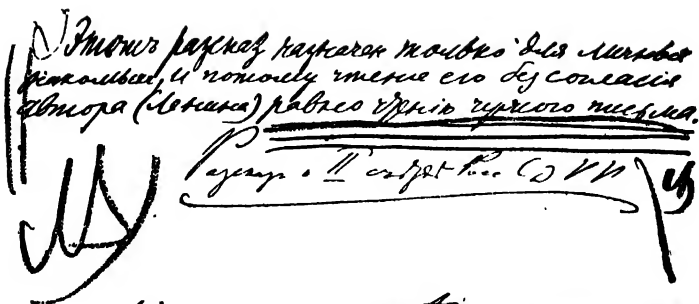 Этотъ разсказ назначен только для личных
знакомых, и потому чтение его без согласия
автора (Ленина) равно чтенію чужого письма.
Рассказ о II съезде РСДРП